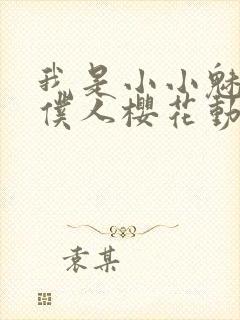 我是小小魅
僕人櫻花動
袁某